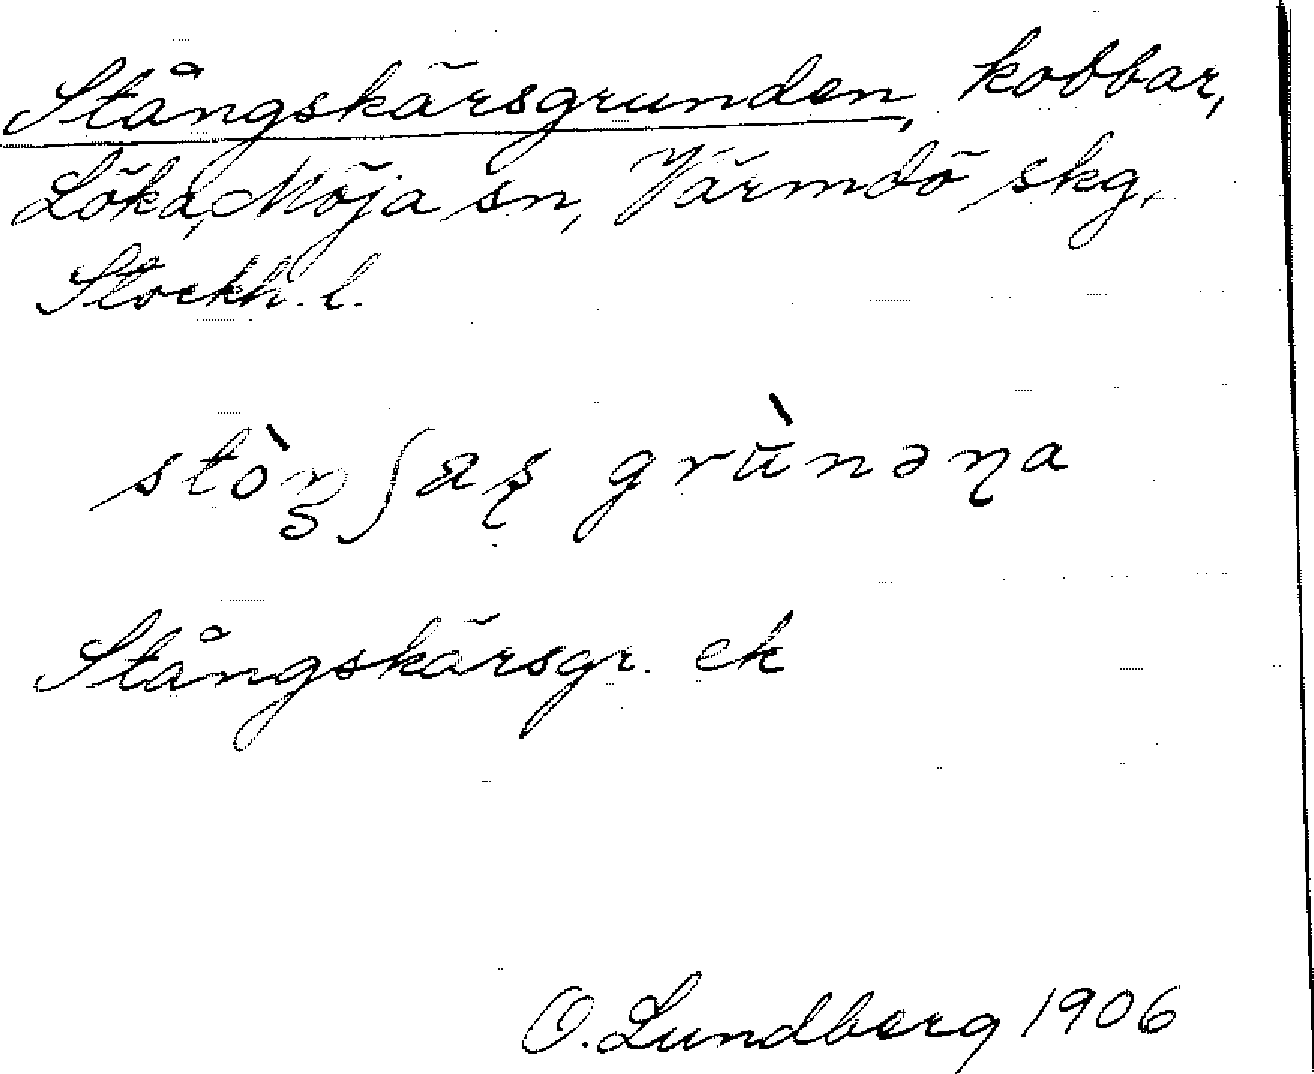 Stångskärsgrunden, kobbar,
Löka, Möja sn, Värmdö skg,
Stockh. l.
stòŋʃæʂ grùnəɳa
Stångskärsgr. ek
O. Lundberg 1906